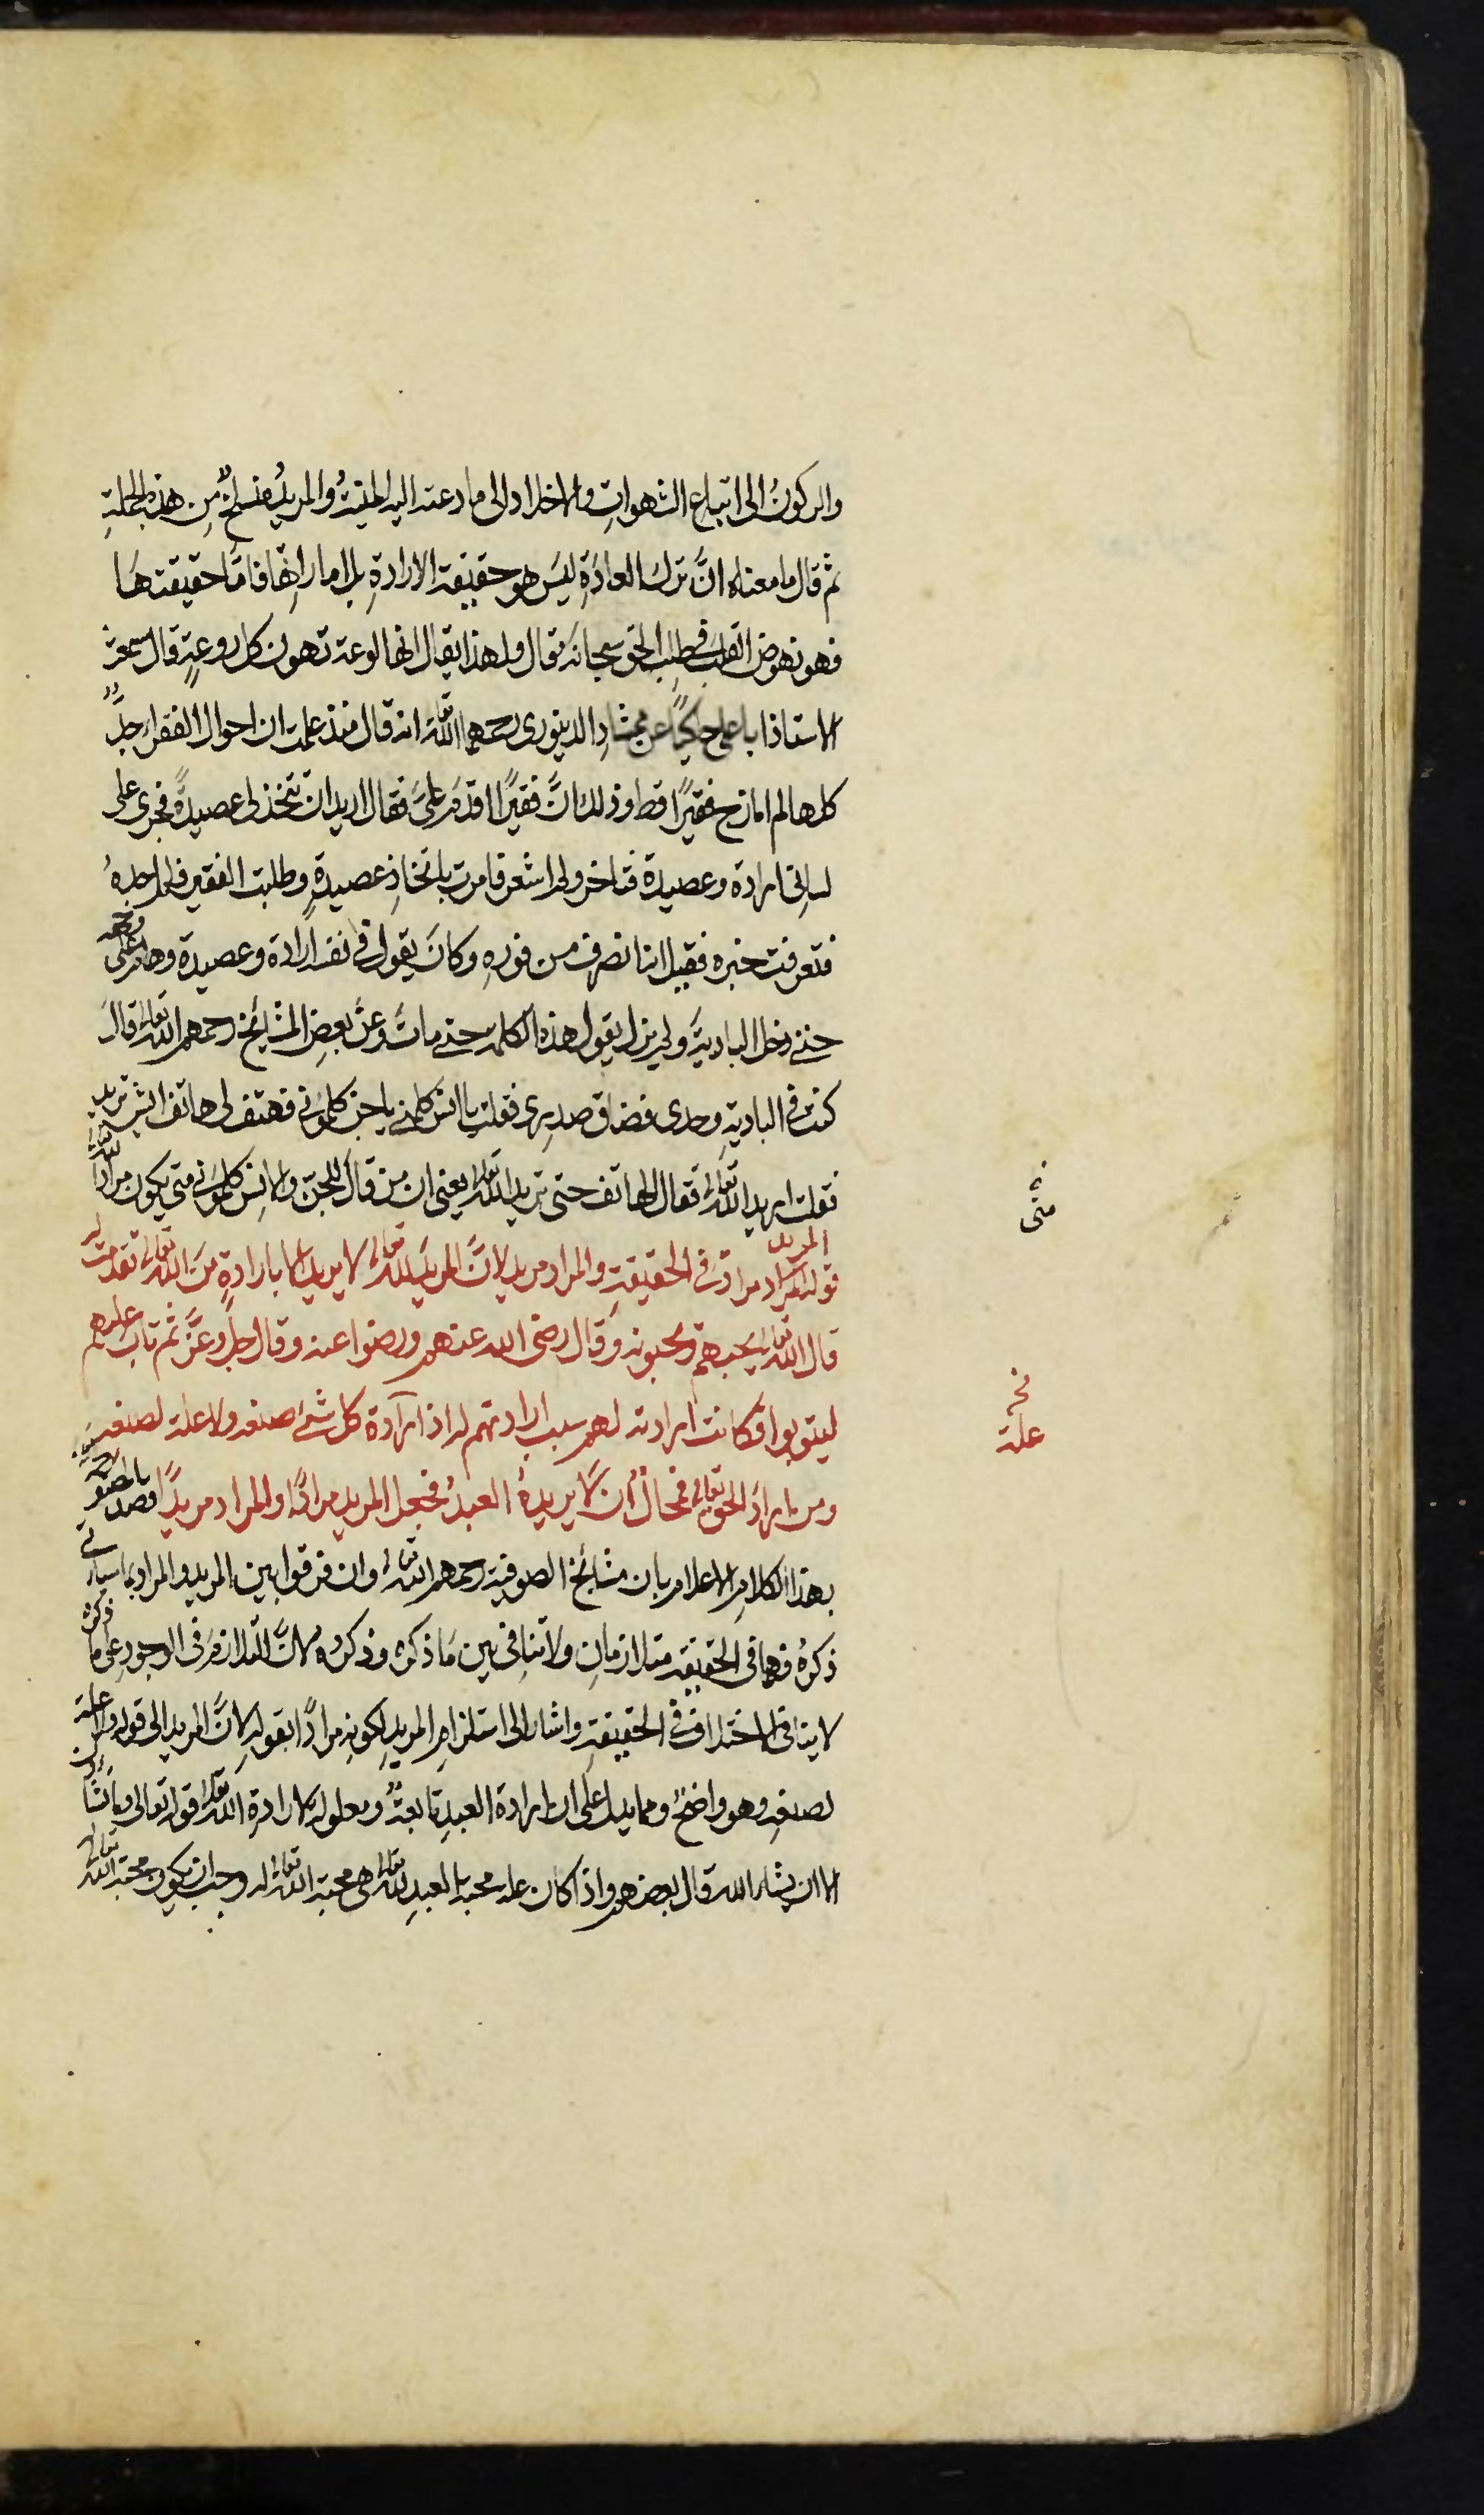 والركونُ الى اتباع الشهواتِ والاخلاد الى ما دعته اليه المنيةُ والمريدُ منسلخٌ مِن هذه الجملةِ
ثم قال ما معناه انَّ ترك العادَةِ ليسَ هو حقيقة الارادةِ بل اماراتها فامَّا حقيقتهَا
فهو نهوض القلب في طلب الحق سبحانه وتعالى ولهذا يقال انها لوعة تهون كل روعةٍ قال سمعت
الاستاذ ابا علي حاكيًا عن ممشادِ الدينوري رحمهما الله تعالى انه قال منذ علمت ان احوال الفقراء جدٌّ
كلها لم امازح فقيرًا قط وذلك انَّ فقيرًا قدمَ عليَّ فقال اريد ان تتخذ لي عصيدةً فجرى على
لساني ارادة وعصيدة فتاخر ولم اشعر فامرت باتخاذِ عصيدةٍ وطلبت الفقير فلم اجدهُ
فتعرفت خبره فقيل انه انصرف من فورهِ وكانَ يقول في نفسه ارادة وعصيدة وهام على وجهه
حتى دخل الباديةَ ولم يزل يقول هذه الكلمة حتى ماتَ وعن بعضِ المشايخ رحمهم الله تعالى قالَ
كنت في الباديةِ وحدي فضاق صدري فقلت يا انس كلموني يا جن كلموني فهتف لي هاتف ايش تريد
فقلت اريد الله تعالى فقال الهاتف حتى تريد الله تعالى يعني ان من قال للجنّ والانس كلموني متى يكون مرادًا لله تعالى
قوله المريد مراد في الحقيقةِ والمراد مريد لانَّ المريدَ لله تعالى لا يريد الا بارادةٍ من الله تعالى تقدمت له
قال الله تعالى يحبهم ويحبونه وقال رضي الله عنهم ورضوا عنه وقال جل وعزَّ ثم تاب عليهم
ليتوبوا فكانت ارادته لهم سبب ارادتهم له اذ ارادة كل شئ صنعه ولا علة لصنعه
ومن اراد الحق تعالى فمحالٌ ان لا يريدهُ العبدُ فجعل المريد مرادًا والمراد مريدًا قصد
بهذا الكلامِ الاعلام بان مشائخ الصوفية رحمهم الله تعالى وان فرقوا بين المريد والمراد بما سياتي
ذكرهُ فهما في الحقيقة متلازمانِ ولا تنافي بين مَا ذكره وذكروه لانَّ التلازمَ في الوجود على ما ذكره
لا ينافي الاختلاف في الحقيقةِ واشار الى استلزامِ المريدِ لكونهِ مرادًا بقولهِ لانَّ المريد الى قوله ولا علة
لصنعهِ وهو واضحٌ ومما يدل على ان ارادة العبدِ تابعةٌ ومعلولة لارادةِ الله تعالى قوله تعالى وما تشاؤن
الا ان يشاء الله قال بعضهم واذا كان علة محبة العبدِ لله تعالى هي محبة الله تعالى له وجب ان يكون محبة الله تعالى
متى
نخ
علة